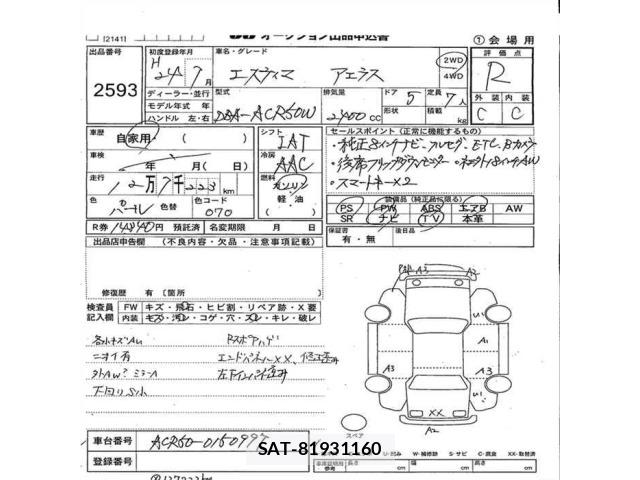 [2141]
オークション出品申込書
① 会場用
出品番号
2593
初度登録年月
H 24 7月
車名・グレード
エスティマ アエラス
2WD
4WD
評価点
R
ディーラー・並行
モデル年式 年
ハンドル 左・右
型式
DBA-ACR50W
排気量
2400 CC
ドア 5
形状
定員 7人
積載
kg
外装 内装
C C
車歴
自家用 ( )
シフト
IAT
セールスポイント (正常に機能するもの)
・純正8インチナビ、フルセグ、ETC、Bカメラ
車検
年 月
冷房
AAC
・後席フリップダウンモニター
・スマートキーX2
走行
12万7千223 km
燃料
ガソリン
軽・油
色
パール
色替
色コード
070
装備品 (純正品に限る)
PS PW ABS エアB AW
SR ナビ TV 本革
R券 預託済 名変期限 年 月
保証書
有・無
後日品
出品店申告欄 (不良内容・欠品・注意事項記載)
修復歴 有 〔箇所 〕
検査員
記入欄
FW キズ・飛石・ヒビ割・リペア跡・X要
内装 モス・汚レ・コゲ・穴・スレ・キレ・破レ
各小キズAU
ニオイ有
外AW
ミラーA
下回りS小
エンドパネルXX、修正済み
A3 A3
U1
A1
A3 A3
U1
XX
A2
スペア
車台番号
ACR50-0150997
登録番号
SAT-81931160
U-凹み W-補修跡 S-サビ C-腐食 XX-取替済
車庫証明用
参考
長さ cm
幅 cm
高さ cm